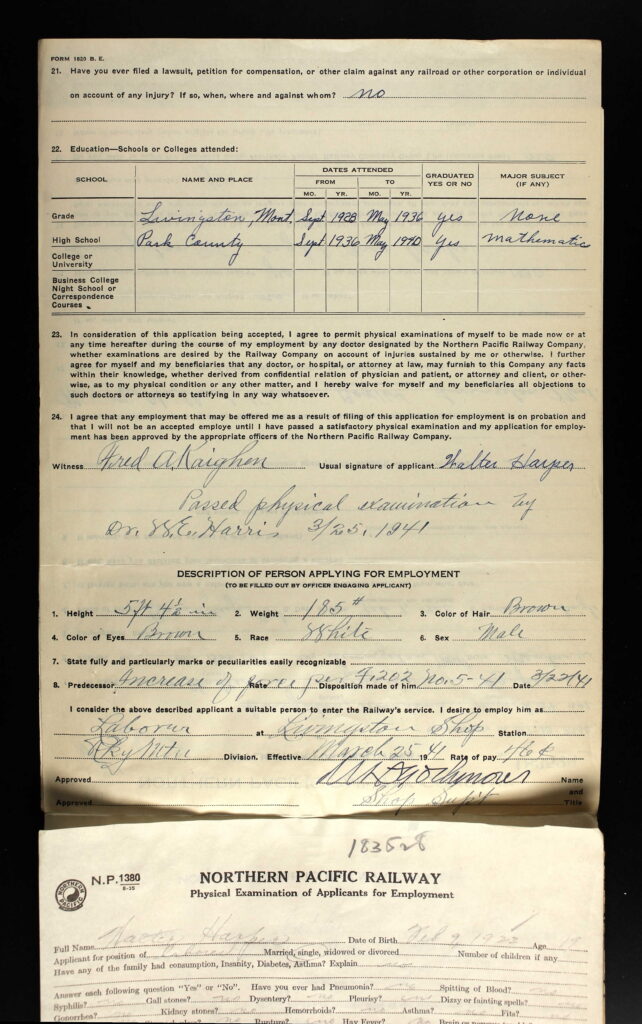 FORM 1820 B. E.
21. Have you ever filed a lawsuit, petition for compensation, or other claim against any railroad or other corporation or individual
on account of any injury? If so, when, where and against whom? no
22. Education—Schools or Colleges attended:
SCHOOL NAME AND PLACE DATES ATTENDED GRADUATED YES OR NO MAJOR SUBJECT (IF ANY)
FROM TO
MO. YR. MO. YR.
Grade Livingston, Mont. Sept 1928 May 1936 yes None
High School Park County Sept 1936 May 1940 Yes mathematic
College or
University
Business College
Night School or
Correspondence
Courses
23. In consideration of this application being accepted, I agree to permit physical examinations of myself to be made now or at
any time hereafter during the course of my employment by any doctor designated by the Northern Pacific Railway Company,
whether examinations are desired by the Railway Company on account of injuries sustained by me or otherwise. I further
agree for myself and my beneficiaries that any doctor, or hospital, or attorney at law, may furnish to this Company any facts
within their knowledge, whether derived from confidential relation of physician and patient, or attorney and client, or other-
wise, as to my physical condition or any other matter, and I hereby waive for myself and my beneficiaries all objections to
such doctors or attorneys so testifying in any way whatsoever.
24. I agree that any employment that may be offered me as a result of filing of this application for employment is on probation and
that I will not be an accepted employe until I have passed a satisfactory physical examination and my application for employ-
ment has been approved by the appropriate officers of the Northern Pacific Railway Company.
Witness Fred A. Kaighen Usual signature of applicant Walter Harper
Passed physical examination by
Dr. W.E. Harris 3/25, 1941
DESCRIPTION OF PERSON APPLYING FOR EMPLOYMENT
(TO BE FILLED OUT BY OFFICER ENGAGING APPLICANT)
1. Height 5ft 4½ in 2. Weight 185# 3. Color of Hair Brown
4. Color of Eyes Brown 5. Race White 6. Sex Male
7. State fully and particularly marks or peculiarities easily recognizable
8. Predecessor Increase of force per Rate F.1202 Disposition made of him No. 5-41 Date 3/22/41
I consider the above described applicant a suitable person to enter the Railway's service. I desire to employ him as
Laborer at Livingston Shop Station
Rky Mtn Division. Effective March 25 1941 Rate of pay 46¢
Approved Name
and
Approved Shop Supt Title
183528
NORTHERN PACIFIC
N.P. 1380
8-35
NORTHERN PACIFIC RAILWAY
Physical Examination of Applicants for Employment
Full Name Walter Harper Date of Birth Feb 9, 1922 Age 19
Applicant for position of Laborer Married, single, widowed or divorced Number of children if any
Have any of the family had consumption, Insanity, Diabetes, Asthma? Explain no
Answer each following question "Yes" or "No". Have you ever had Pneumonia? no Spitting of Blood? no
Syphilis? no Gall stones? no Dysentery? no Pleurisy? no Dizzy or fainting spells? no
Gonorrhea? no Kidney stones? no Hemorrhoids? no Asthma? no Fits? no
Rupture? no Hay Fever? no